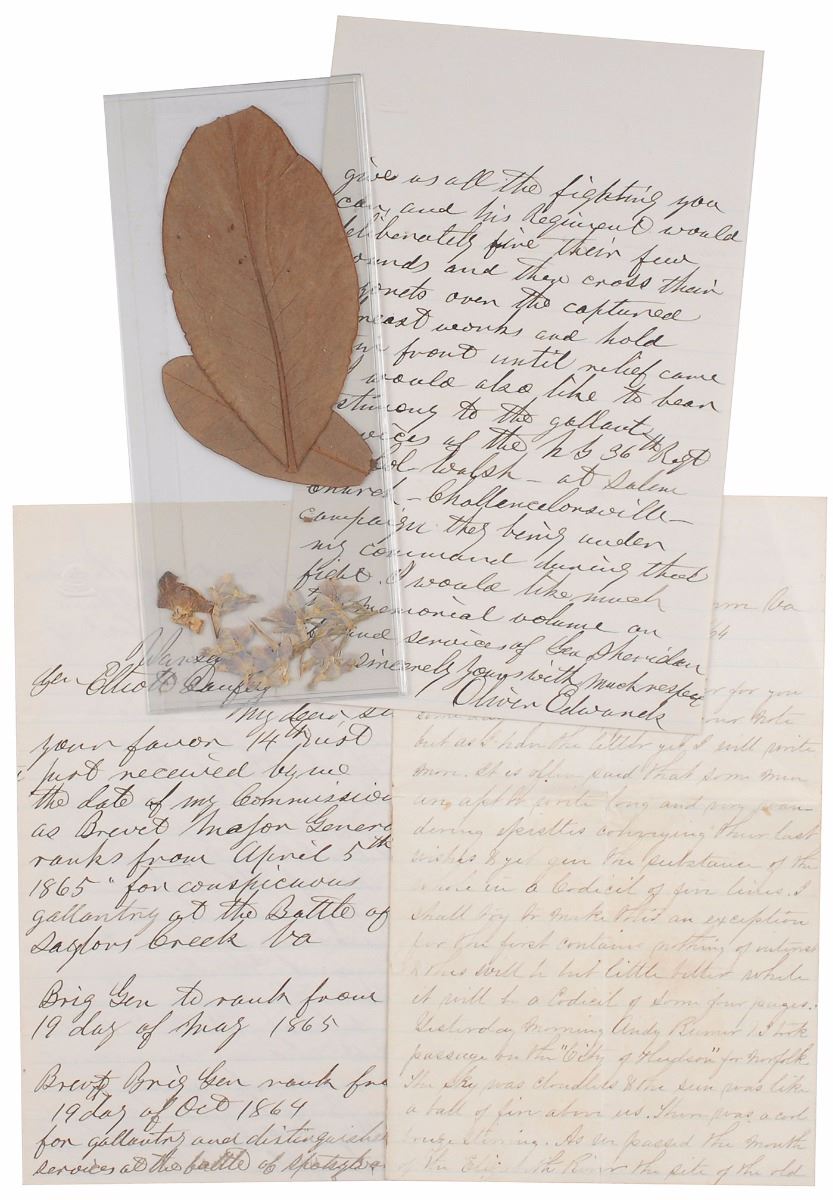 give us all the fighting you
can, and his Regiment would
deliberately fire their few
rounds and then cross their
bayonets over the captured
breast works and hold
front until relief came
I would also like to bear
testimony to the gallant
services of the N J 36th Regt
Col Walsh - at Salem
Church - Chancelorsville -
campaign they being under
my command during that
fight. I would like much
memorial volume on
and services of Gen Sheridan
sincerely yours with much respect
Oliver Edwards
Warsaw
Gen Elliott
My dear
your favor 14th inst
just received by me
the date of my Commission
as Brevet Major General
ranks from April 5th
1865 "for conspicuous
gallantry at the Battle of
Saylors Creek Va
Brig Gen to rank from
19 day of May 1865
Brevt Brig Gen rank fro
19 day of Oct 1864
for gallantry and distinguished
services at the battle of Spotsylva
Va
64
for you
your note
but as I have the letter yet I will write
more. It is often said that some men
are apt to write long and very
epistles conveying their last
wishes & yet give the substance of the
whole in a Codicil of five lines. I
shall try to make this an exception
for the first contains nothing of interest
& this will be but little better while
it will be a Codicil of some four pages.
Yesterday morning Andy & I took
passage on the "City of Hudson" for Norfolk
The sky was cloudless & the sun was like
a ball of fire above us. There was a cool
As we passed the mouth
of the Elizabeth River the site of the old